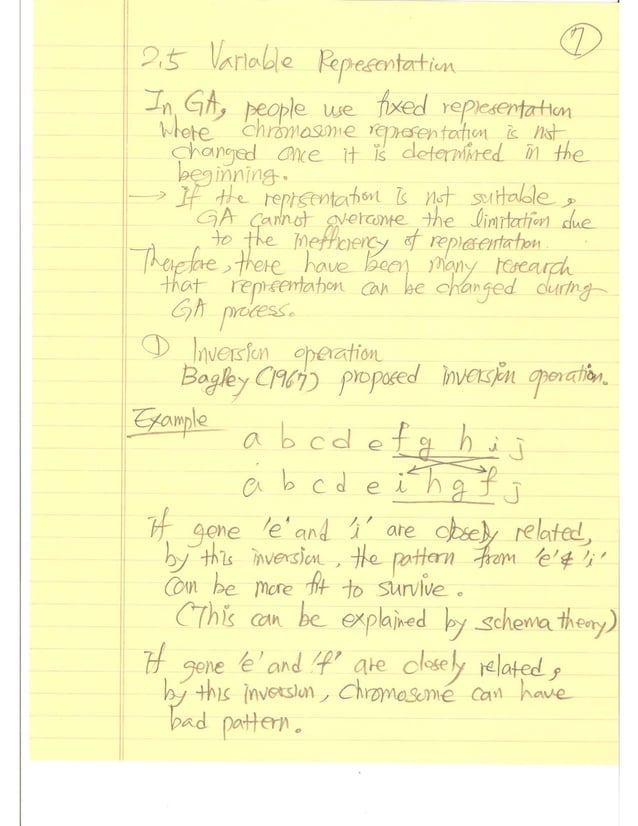 7
2.5 Variable Representation
In GA, people use fixed representation
where chromosome representation is not
changed once it is determined in the
beginning.
→ If the representation is not suitable,
GA cannot overcome the limitation due
to the inefficiency of representation.
Therefore, there have been many research
that representation can be changed during
GA process.
① Inversion operation
Bagley (1967) proposed inversion operation.
Example
a b c d e f g h i j
a b c d e i h g f j
If gene 'e' and 'i' are closely related,
by this inversion, the pattern from 'e' & 'i'
can be more fit to survive.
(This can be explained by schema theory)
If gene 'e' and 'f' are closely related,
by this inversion, chromosome can have
bad pattern.